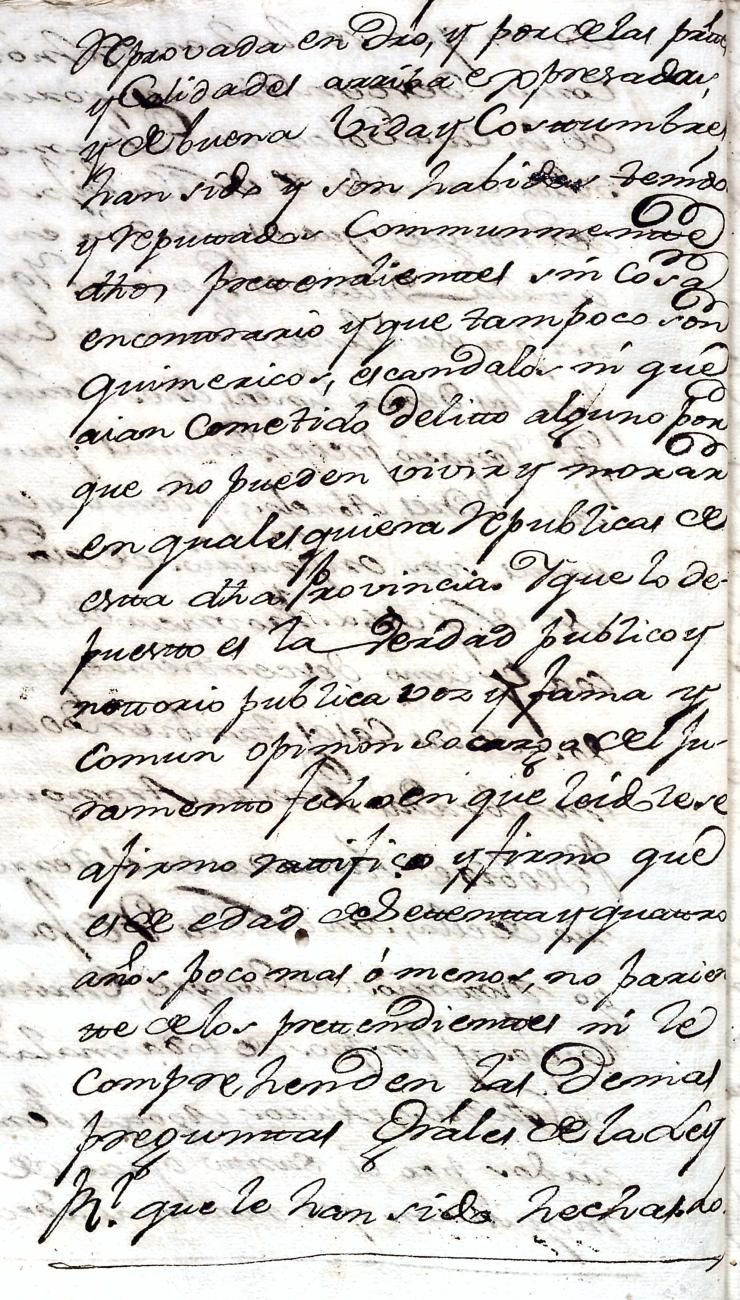 Reprovada en Dro, y por de las prtes
y Calidades arriba expresadas,
y de buena Vida y Costumbres
han sido y son habidos tenidos
y reputados Communmente
dhos pretendientes sin Cosa
encontrario y que tampoco son
quimericos, escandalos. ni que
aian Cometido Delitto alguno por
que no pueden vivir y morar
en quales quiera Republicas de
estta dha Provincia. Y que lo de-
puestto es la Verdad publico y
nottorio publica voz y fama y
Comun opinion so carga del Ju-
ramentto fcho en que leidolese
afirmo rattifico y firmo que
es de edad de Settenta y quattro
años poco mas ó menos, no parien
tte de los prettendienttes ni le
Comprehenden las Demas
preguntas Grâles de la Ley
Rl. que le han sido hechas.